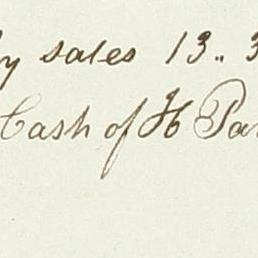 By sales 13.. 3
Cash of H Par